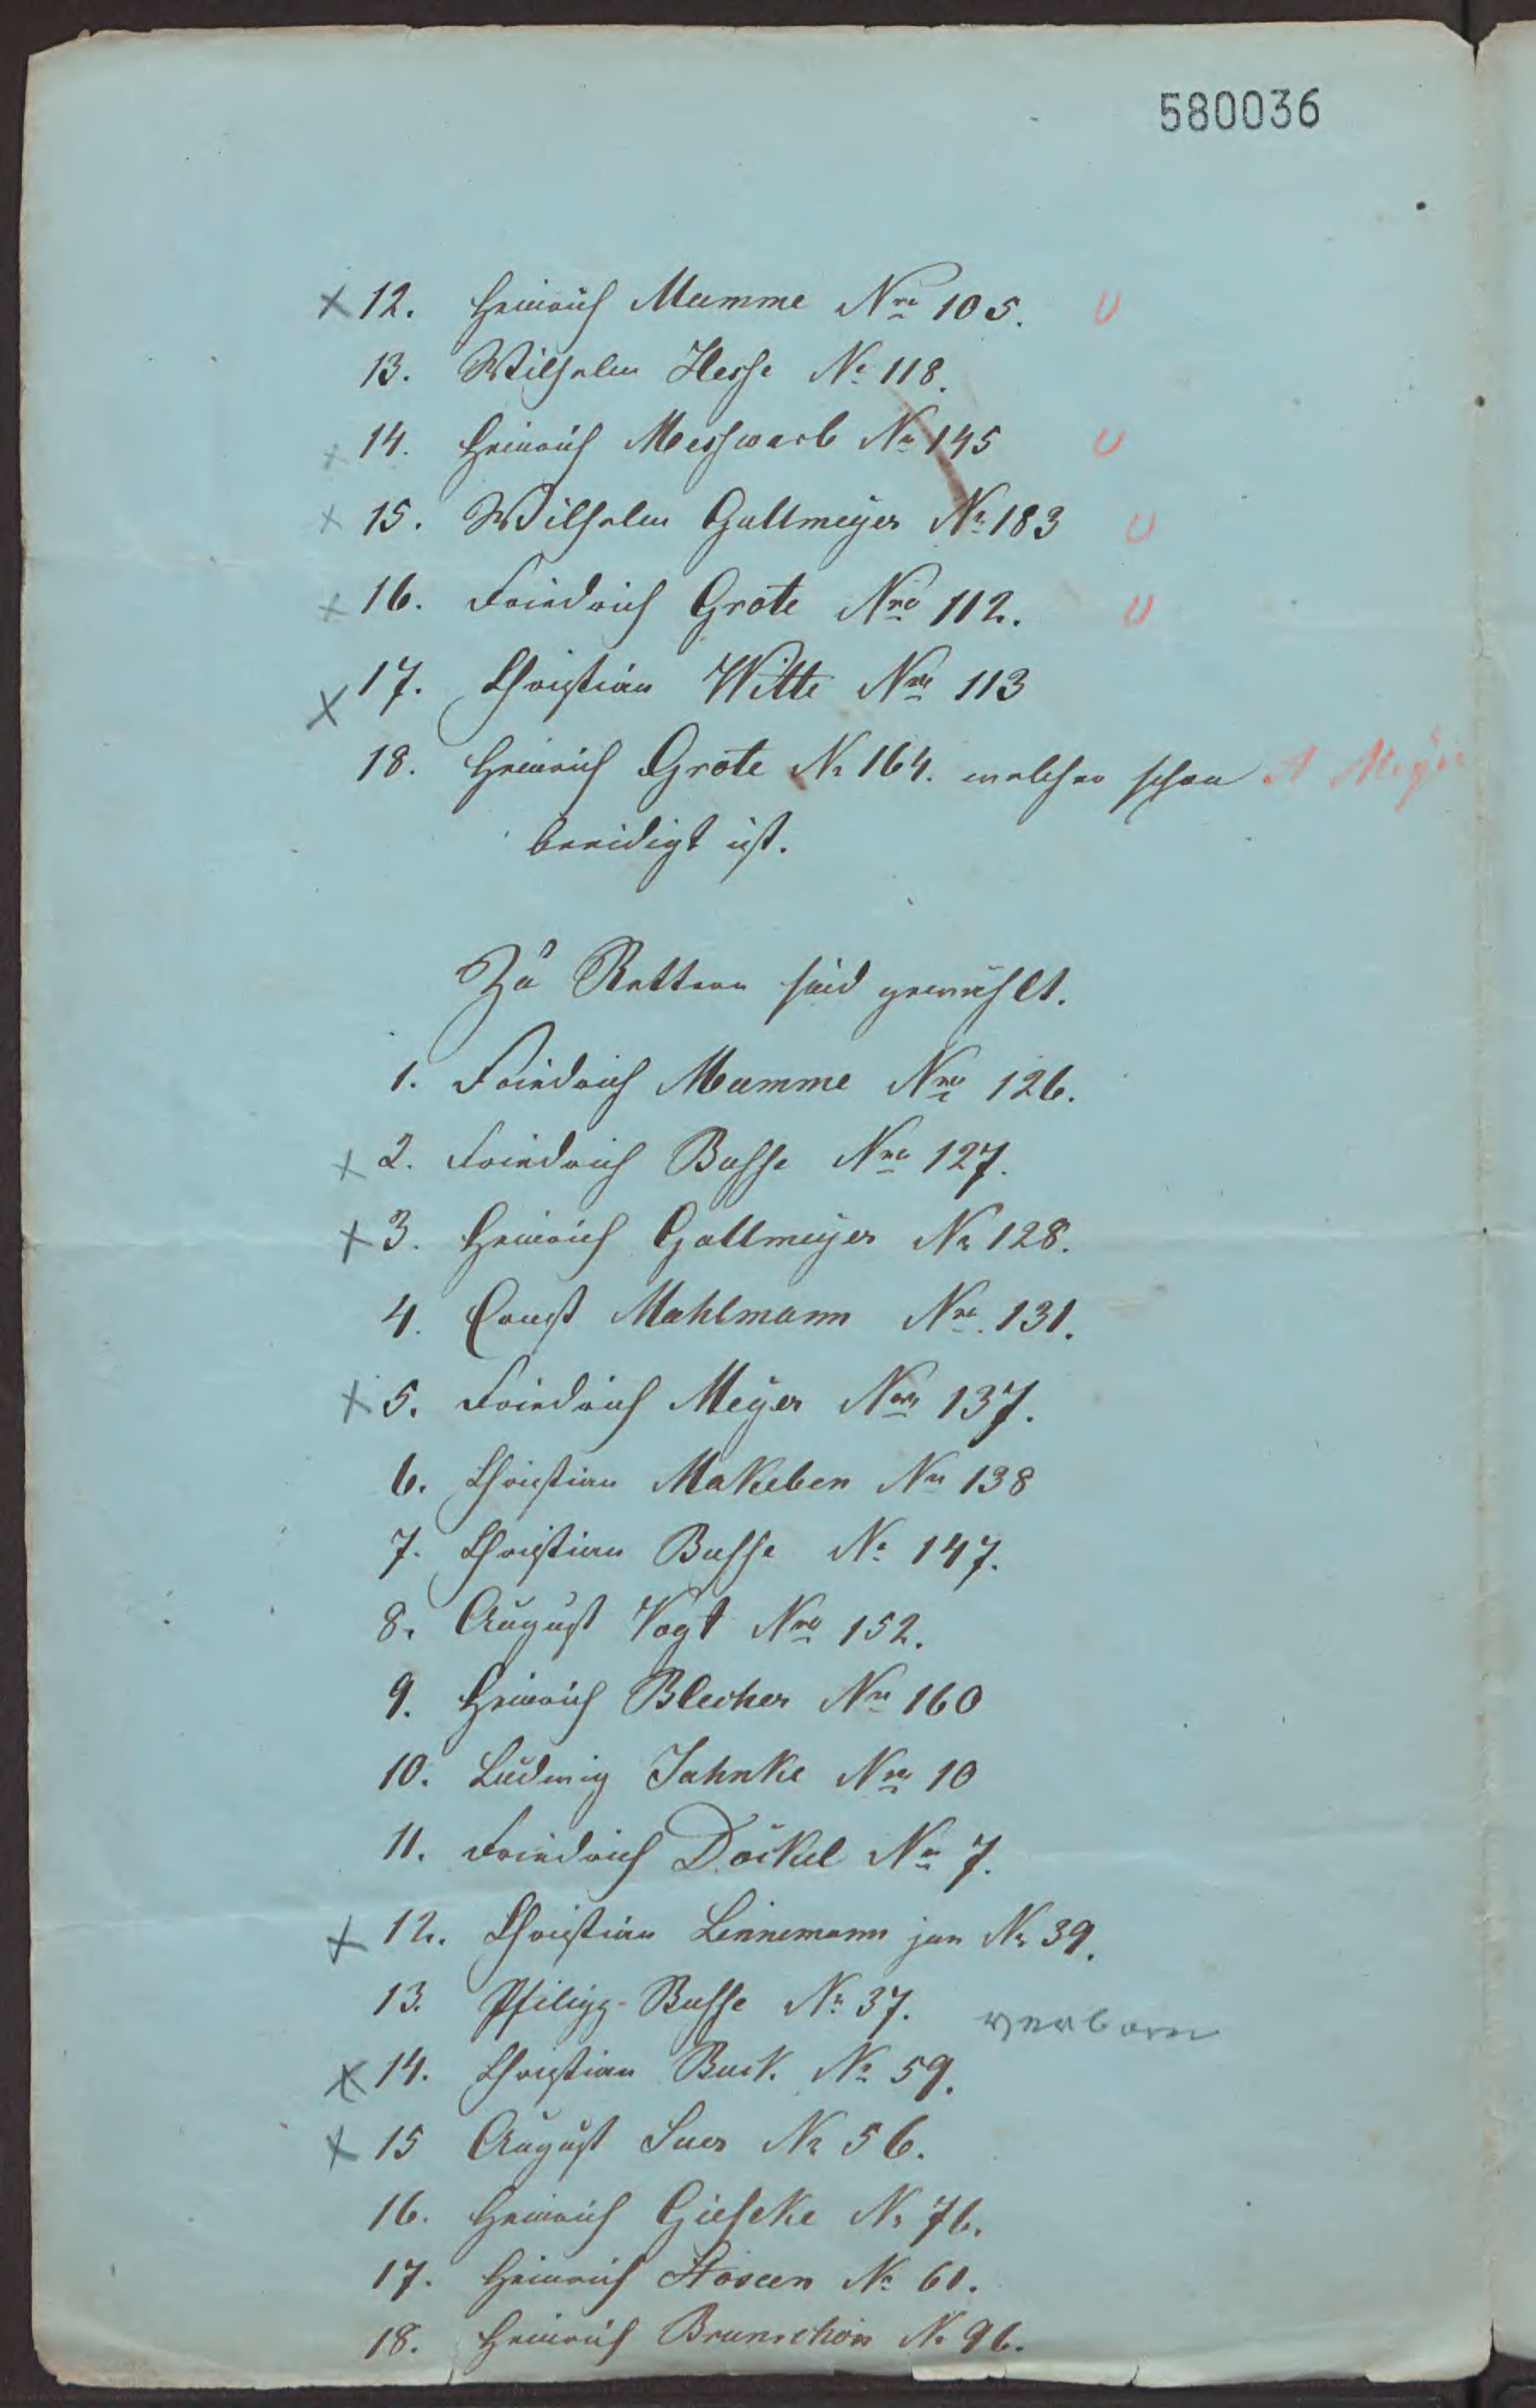 580036
× 12. Heinrich Mumme Nro 105. U
13. Wilhelm Hesse No 118.
× 14. Heinrich Messwarb No 145 U
× 15. Wilhelm Gallmeyer No 183 U
× 16. Friedrich Grote Nro 112. U
× 17. Christian Witte Nro 113
18. Heinrich Grote No 164. welcher schon A Meyer
beeidigt ist.
Zu Rettern sind gewählt.
1. Friedrich Mumme Nro 126.
× 2. Friedrich Busse Nro 127.
× 3. Heinrich Gallmeyer No 128.
4. Ernst Mahlmann Nro 131.
× 5. Friedrich Meyer Nro 137.
6. Christian Makeben Nro 138
7. Christian Busse No 147.
8. August Vogt Nro 152.
9. Heinrich Blecher Nro 160
10. Ludwig Jahnke Nro 10
11. Friedrich Döckel No 7.
× 12. Christian Linnemann jun No 39.
13. Philipp Busse No 37.
× 14. Christian Buck. No 59.
× 15 August Suer No 56.
16. Heinrich Gieseke No 76.
17. Heinrich No 61.
18. Heinrich No 96.